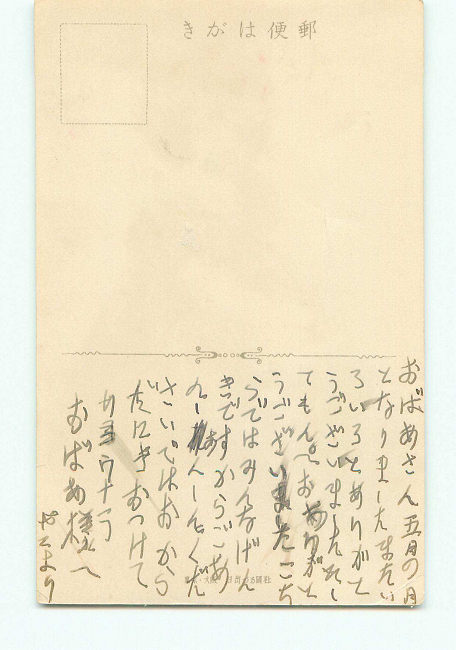 郵便はがき
おばあさん 五月の月
となりましたまたい
ろいろとありがと
うございましたたし
てもんぺおありがと
うございましたこち
らではみんなげん
きですからごあ
んしんくだ
さいではおから
だにきおつけて
サヨウナラ
おばあ様へ
より